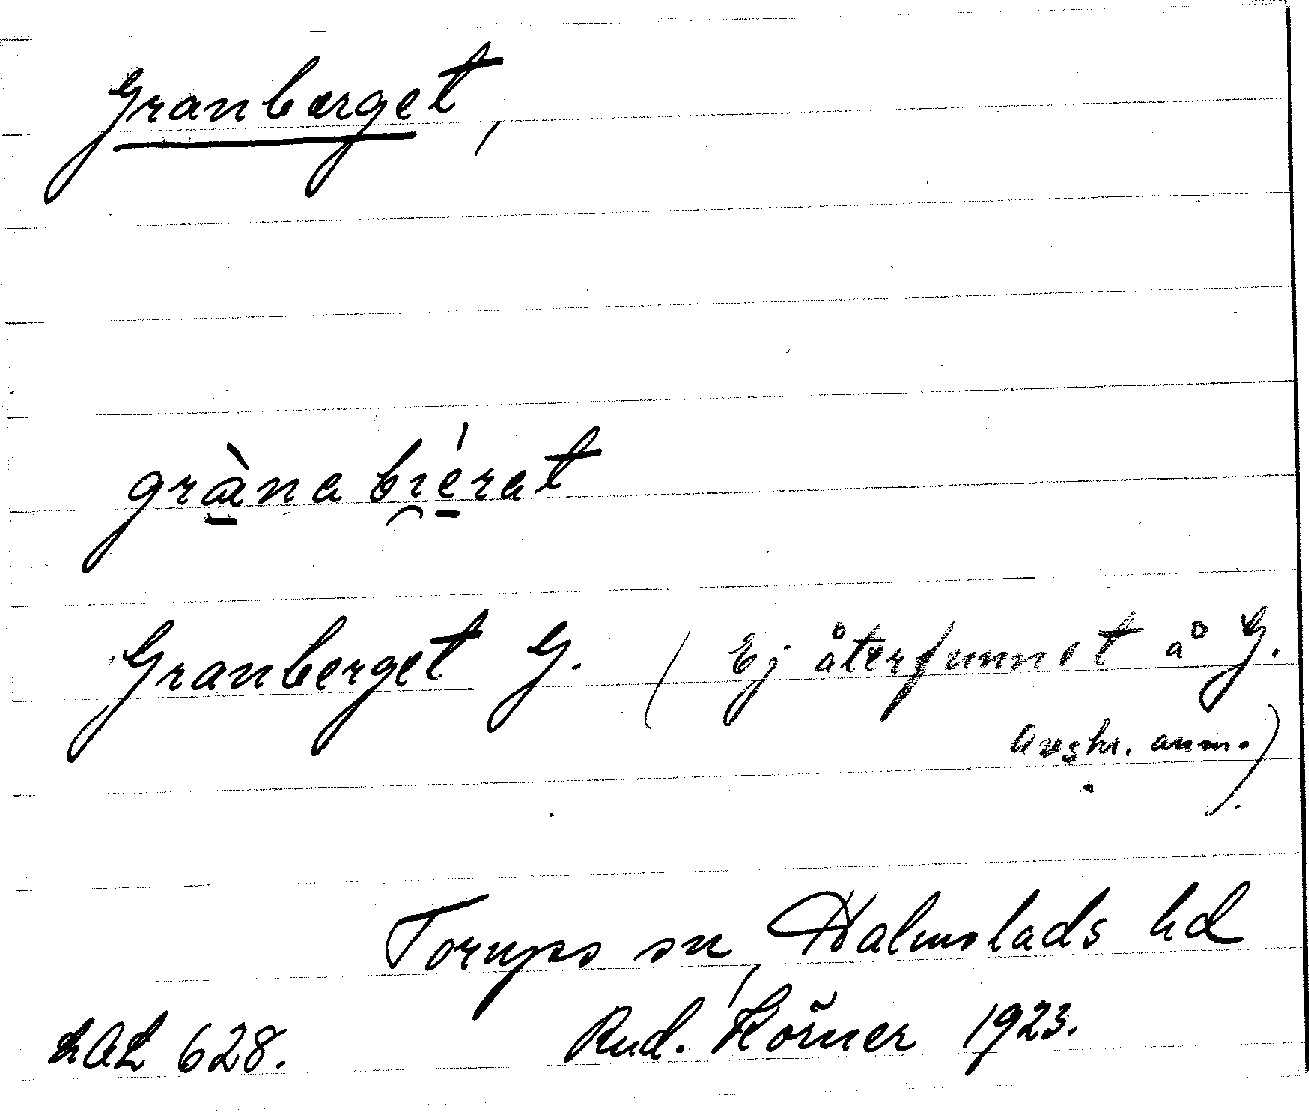 Granberget,
gràna biérat
Granberget G. (Ej återfunnet å G.
Avskr. anm.)
Torups sn, Halmstads hd
LAL 628. Rud. Körner 1923.